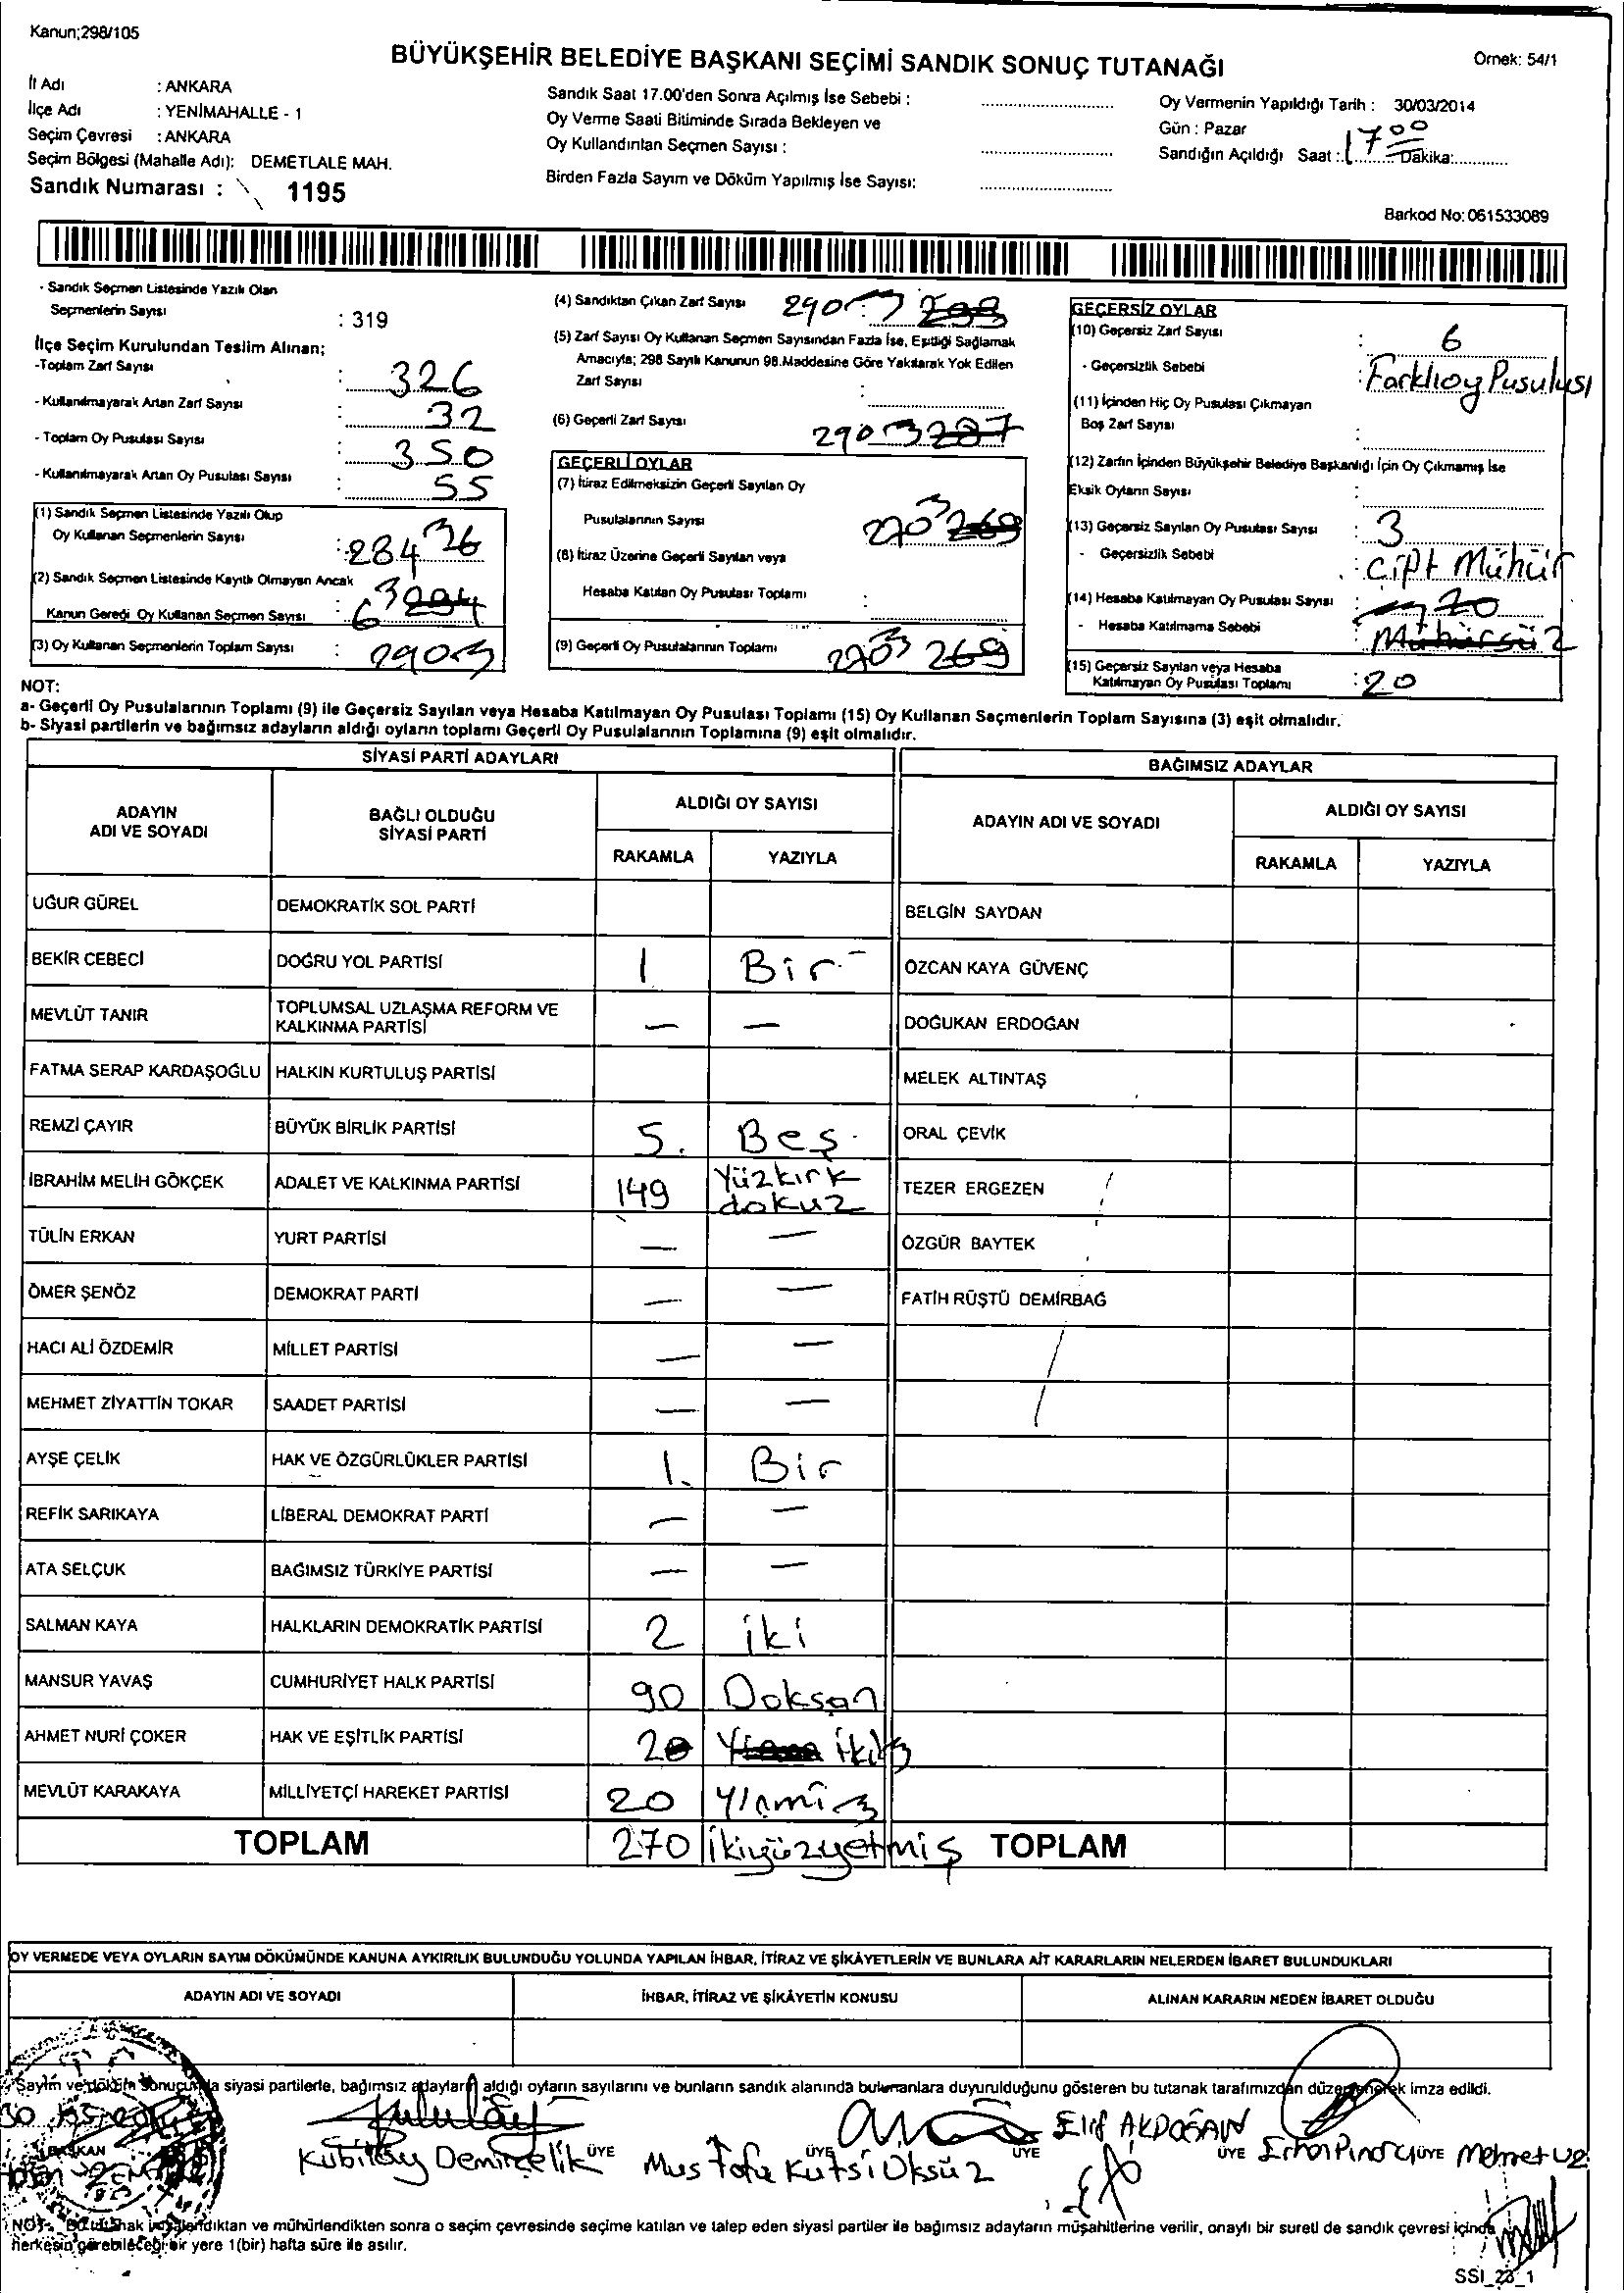 Kanun;298/105
BÜYÜKŞEHİR BELEDİYE BAŞKANI SEÇİMİ SANDIK SONUÇ TUTANAĞI
Örnek: 54/1
İl Adı : ANKARA
İlçe Adı : YENİMAHALLE - 1
Seçim Çevresi : ANKARA
Seçim Bölgesi (Mahalle Adı): DEMETLALE MAH.
Sandık Numarası : 1195
Sandık Saat 17.00'den Sonra Açılmış İse Sebebi :
Oy Verme Saati Bitiminde Sırada Bekleyen ve
Oy Kullandırılan Seçmen Sayısı :
Birden Fazla Sayım ve Döküm Yapılmış İse Sayısı:
Oy Vermenin Yapıldığı Tarih : 30/03/2014
Gün : Pazar
Sandığın Açıldığı Saat : 17 00 Dakika:
Barkod No: 061533089
- Sandık Seçmen Listesinde Yazılı Olan
Seçmenlerin Sayısı : 319
İlçe Seçim Kurulundan Teslim Alınan;
-Toplam Zarf Sayısı : 326
- Kullanılmayarak Artan Zarf Sayısı : 32
- Toplam Oy Pusulası Sayısı : 350
- Kullanılmayarak Artan Oy Pusulası Sayısı : 55
(1) Sandık Seçmen Listesinde Yazılı Olup
Oy Kullanan Seçmenlerin Sayısı : 284
(2) Sandık Seçmen Listesinde Kayıtlı Olmayan Ancak
Kanun Gereği Oy Kullanan Seçmen Sayısı : 6
(3) Oy Kullanan Seçmenlerin Toplam Sayısı : 290
(4) Sandıktan Çıkan Zarf Sayısı 290
(5) Zarf Sayısı Oy Kullanan Seçmen Sayısından Fazla İse, Eşitliği Sağlamak
Amacıyla; 298 Sayılı Kanunun 98.Maddesine Göre Yakılarak Yok Edilen
Zarf Sayısı :
(6) Geçerli Zarf Sayısı : 290 287
GEÇERLİ OYLAR
(7) İtiraz Edilmeksizin Geçerli Sayılan Oy
Pusulalarının Sayısı 270 269
(8) İtiraz Üzerine Geçerli Sayılan veya
Hesaba Katılan Oy Pusulası Toplamı :
(9) Geçerli Oy Pusulalarının Toplamı 270 269
GEÇERSİZ OYLAR
(10) Geçersiz Zarf Sayısı : 6
- Geçersizlik Sebebi : Farklı oy Pusulası
(11) İçinden Hiç Oy Pusulası Çıkmayan
Boş Zarf Sayısı :
(12) Zarfın İçinden Büyükşehir Belediye Başkanlığı İçin Oy Çıkmamış İse
Eksik Oyların Sayısı :
(13) Geçersiz Sayılan Oy Pusulası Sayısı : 3
- Geçersizlik Sebebi : Çift Mühür
(14) Hesaba Katılmayan Oy Pusulası Sayısı :
- Hesaba Katılmama Sebebi : Mühürsüz
(15) Geçersiz Sayılan veya Hesaba
Katılmayan Oy Pusulası Toplamı : 20
NOT:
a- Geçerli Oy Pusulalarının Toplamı (9) ile Geçersiz Sayılan veya Hesaba Katılmayan Oy Pusulası Toplamı (15) Oy Kullanan Seçmenlerin Toplam Sayısına (3) eşit olmalıdır.
b- Siyasi partilerin ve bağımsız adayların aldığı oyların toplamı Geçerli Oy Pusulalarının Toplamına (9) eşit olmalıdır.
SİYASİ PARTİ ADAYLARI
ADAYIN ADI VE SOYADI
BAĞLI OLDUĞU SİYASİ PARTİ
ALDIĞI OY SAYISI
RAKAMLA YAZIYLA
UĞUR GÜREL DEMOKRATİK SOL PARTİ
BEKİR CEBECİ DOĞRU YOL PARTİSİ 1 Bir
MEVLÜT TANIR TOPLUMSAL UZLAŞMA REFORM VE KALKINMA PARTİSİ — —
FATMA SERAP KARDAŞOĞLU HALKIN KURTULUŞ PARTİSİ
REMZİ ÇAYIR BÜYÜK BİRLİK PARTİSİ 5. Beş
İBRAHİM MELİH GÖKÇEK ADALET VE KALKINMA PARTİSİ 149 Yüzkırk dokuz
TÜLİN ERKAN YURT PARTİSİ — —
ÖMER ŞENÖZ DEMOKRAT PARTİ — —
HACI ALİ ÖZDEMİR MİLLET PARTİSİ — —
MEHMET ZİYATTİN TOKAR SAADET PARTİSİ — —
AYŞE ÇELİK HAK VE ÖZGÜRLÜKLER PARTİSİ 1. Bir
REFİK SARIKAYA LİBERAL DEMOKRAT PARTİ — —
ATA SELÇUK BAĞIMSIZ TÜRKİYE PARTİSİ — —
SALMAN KAYA HALKLARIN DEMOKRATİK PARTİSİ 2 iki
MANSUR YAVAŞ CUMHURİYET HALK PARTİSİ 90 Doksan
AHMET NURİ ÇOKER HAK VE EŞİTLİK PARTİSİ 2 iki
MEVLÜT KARAKAYA MİLLİYETÇİ HAREKET PARTİSİ 20 Yirmi
TOPLAM 270 İkiyüzyetmiş
BAĞIMSIZ ADAYLAR
ADAYIN ADI VE SOYADI
ALDIĞI OY SAYISI
RAKAMLA YAZIYLA
BELGİN SAYDAN
ÖZCAN KAYA GÜVENÇ
DOĞUKAN ERDOĞAN
MELEK ALTINTAŞ
ORAL ÇEVİK
TEZER ERGEZEN
ÖZGÜR BAYTEK
FATİH RÜŞTÜ DEMİRBAĞ
TOPLAM
OY VERMEDE VEYA OYLARIN SAYIM DÖKÜMÜNDE KANUNA AYKIRILIK BULUNDUĞU YOLUNDA YAPILAN İHBAR, İTİRAZ VE ŞİKÂYETLERİN VE BUNLARA AİT KARARLARIN NELERDEN İBARET BULUNDUKLARI
ADAYIN ADI VE SOYADI İHBAR, İTİRAZ VE ŞİKÂYETİN KONUSU ALINAN KARARIN NEDEN İBARET OLDUĞU
Sayım ve döküm sonucunda siyasi partilerle, bağımsız adayların aldığı oyların sayılarını ve bunların sandık alanında bulunanlara duyurulduğunu gösteren bu tutanak tarafımızdan düzenlenerek imza edildi.
BAŞKAN ÜYE ÜYE ÜYE ÜYE ÜYE
Kubilay Demirçelik Mustafa Kutsi Öksüz Elif AKDOĞAN Mehmet
NOT: Bu tutanak imzalandıktan ve mühürlendikten sonra o seçim çevresinde seçime katılan ve talep eden siyasi partiler ile bağımsız adayların müşahitlerine verilir, onaylı bir sureti de sandık çevresi içinde
herkesin görebileceği bir yere 1(bir) hafta süre ile asılır.
SSI_23_1